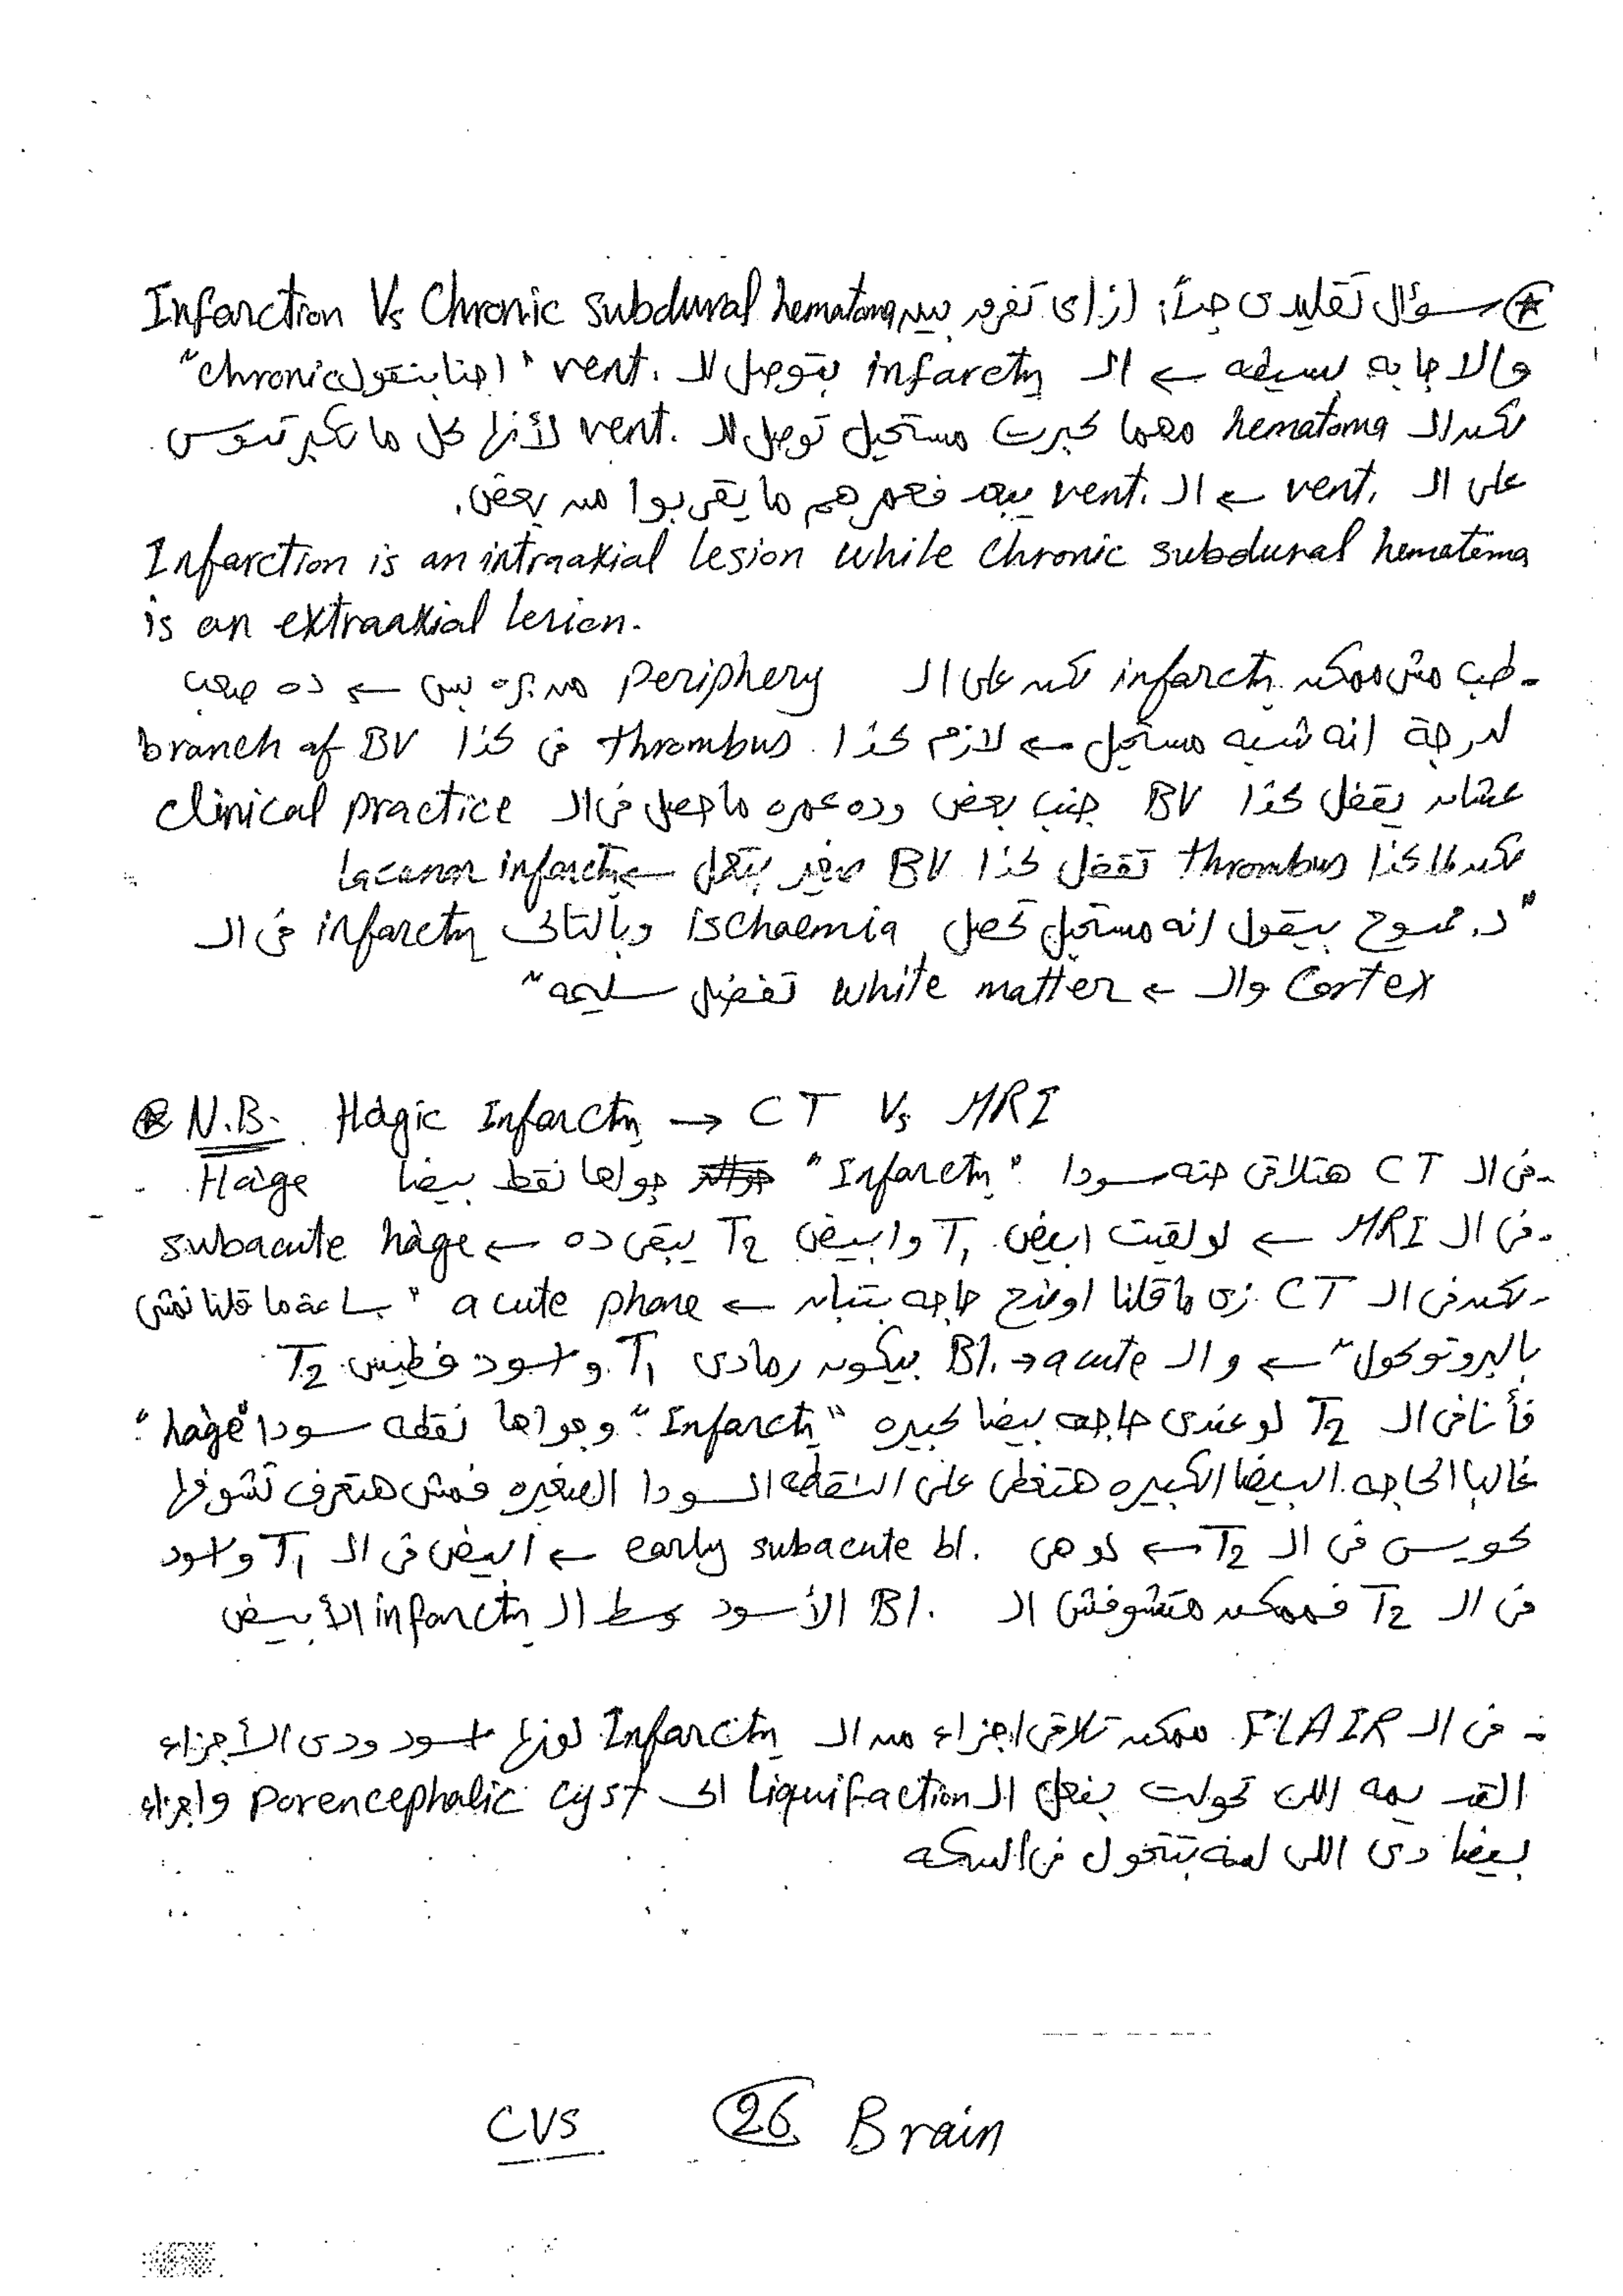 سؤال تقليدى جداً: ازاى تفرق بين Infarction Vs Chronic subdural hematoma
والاجابه بسيطه ← الـ infarctn بتوصل للـ vent. "احنا بنقول chronic"
لكن الـ hematoma مهما كبرت مستحيل توصل للـ vent. لأنها كل ما تكبر تدوس
على الـ vent. ← الـ vent. يبعد فعمرهم ما يقربوا من بعض.
Infarction is an intraaxial lesion while chronic subdural hematoma
is an extraaxial lesion.
- طب مش ممكن infarctn تكون على الـ periphery من بره بس ← ده صعب
لدرجة انه شبه مستحيل ← لازم كذا thrombus فى كذا branch of BV
عشان يقفل كذا BV جنب بعض وده عمره ما حصل فى الـ clinical practice
لكن لما كذا thrombus تقفل كذا BV صغير بتعمل ← Lacunar infarctn
"د. ممدوح بيقول انه مستحيل تحصل ischaemia وبالتالى infarctn فى الـ
Cortex والـ ← white matter تفضل سليمه"
N.B. Hagic Infarctn → CT Vs MRI
- فى الـ CT هتلاقى حته سودا "Infarctn" جواها نقط بيضا Hage
- فى الـ MRI ← لو لقيت ابيض T1 وابيض T2 يبقى ده ← subacute hage
- لكن فى الـ CT زى ما قلنا اوضح حاجه بتبان ← acute phase "ساعة ما قلنا نمشى
بالبروتوكول" ← و الـ acute → Bl. بيكون رمادى T1 واسود فطيس T2
فأنا فى الـ T2 لو عندى حاجه بيضا كبيره "Infarctn" وجواها نقطه سودا "hage"
غالبا الحاجه البيضا الكبيره هتغطى على النقطه السودا الصغيره فمش هتعرف تشوفها
كويس فى الـ T2 ← لو هى early subacute bl. ← ابيض فى الـ T1 واسود
فى الـ T2 فممكن متشوفش الـ Bl. الأسود وسط الـ infarctn الأبيض
- فى الـ FLAIR ممكن تلاقى اجزاء من الـ Infarctn لونها اسود ودى الأجزاء
القديمه اللى تحولت بفعل الـ liquifaction الى porencephalic cyst واجزاء
بيضا دى اللى لسه بتتحول فى السكه
CVS 26 Brain